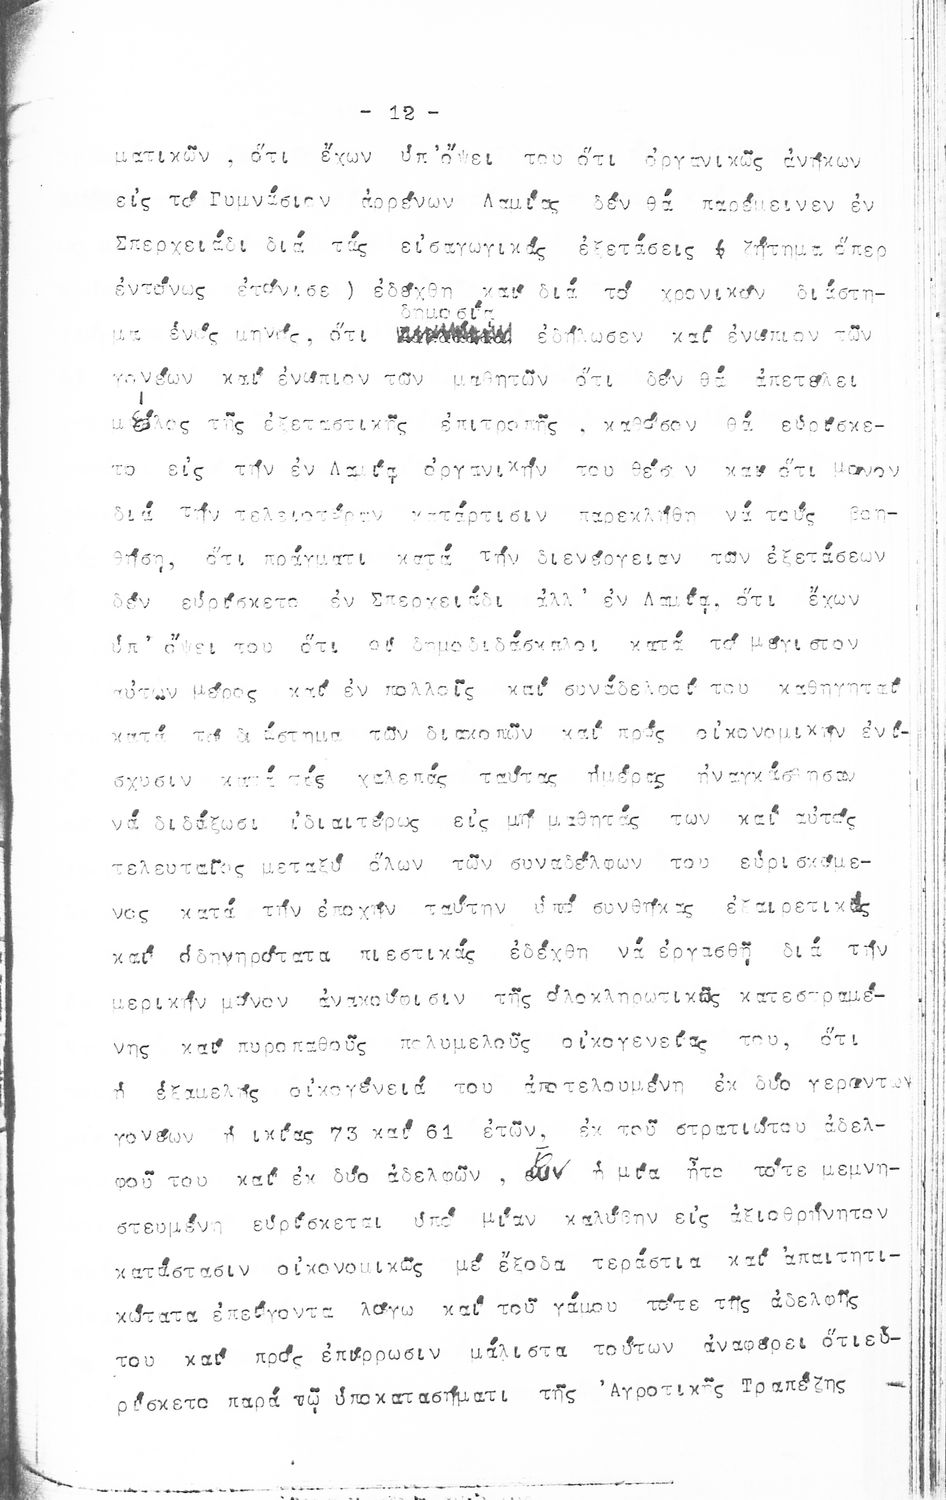 - 12 -
ματικῶν , ὅτι ἔχων ὑπ'ὄψει του ὅτι ὀργανικῶς ἀνήκων
εἰς τό Γυμνάσιον ἀρρένων Λαμίας δέν θά παρέμεινεν ἐν
Σπερχειάδι διά τάς εἰσαγωγικάς ἐξετάσεις ( ζήτημα ὅπερ
ἐντόνως ἐτόνισε ) ἐδέχθη καί διά τό χρονικόν διάστη-
δημοσίᾳ
μα ἑνός μηνός, ὅτι ἐδήλωσεν καί ἐνώπιον τῶν
γονέων καί ἐνώπιον τῶν μαθητῶν ὅτι δέν θά ἀπετέλει
μέλος τῆς ἐξεταστικῆς ἐπιτροπῆς , καθόσον θά εὑρίσκε-
το εἰς τήν ἐν Λαμίᾳ ὀργανικήν του θέσιν καί ὅτι μόνον
διά τήν τελειοτέραν κατάρτισιν παρεκλήθη νά τούς βοη-
θήσῃ, ὅτι πράγματι κατά τήν διενέργειαν των ἐξετάσεων
δέν εὑρίσκετο ἐν Σπερχειάδι ἀλλ' ἐν Λαμίᾳ, ὅτι ἔχων
ὑπ' ὄψει του ὅτι οἱ δημοδιδάσκαλοι κατά τό μέγιστον
αὐτων μέρος καί ἐν πολλοῖς καί συνάδελφοί του καθηγηταί
κατά τό διάστημα τῶν διακοπῶν καί πρός οἰκονομικήν ἐνί-
σχυσιν κατά τάς χαλεπάς ταύτας ἡμέρας ἠναγκάσθησαν
νά διδάξωσι ἰδιαιτέρως εἰς μή μαθητάς των καί αὐτός
τελευταῖος μεταξύ ὅλων τῶν συναδέλφων του εὑρισκόμε-
νος κατά τήν ἐποχήν ταύτην ὑπό συνθήκας ἐξαιρετικάς
καί ὀδυνηρότατα πιεστικάς ἐδέχθη νά ἐργασθῇ διά τήν
μερικήν μόνον ἀνακούφισιν τῆς ὁλοκληρωτικῶς κατεστραμέ-
νης καί πυροπαθοῦς πολυμελοῦς οἰκογενείας του, ὅτι
ἡ ἑξαμελής οἰκογένειά του ἀποτελουμένη ἐκ δύο γερόντων
γονέων ἡλικίας 73 καί 61 ἐτῶν, ἐκ τοῦ στρατιώτου ἀδελ-
φοῦ του καί ἐκ δύο ἀδελφῶν , ὧν ἡ μία ἦτο τότε μεμνη-
στευμένη εὑρίσκεται ὑπό μίαν καλύβην εἰς ἀξιοθρήνητον
κατάστασιν οἰκονομικῶς μέ ἔξοδα τεράστια καί ἀπαιτητι-
κώτατα ἐπείγοντα λόγω καί τοῦ γάμου τότε τῆς ἀδελφῆς
του καί πρός ἐπίρρωσιν μάλιστα τούτων ἀναφέρει ὅτιεὑ-
ρίσκετο παρά τῷ ὑποκαταστήματι τῆς Ἀγροτικῆς Τραπέζης -